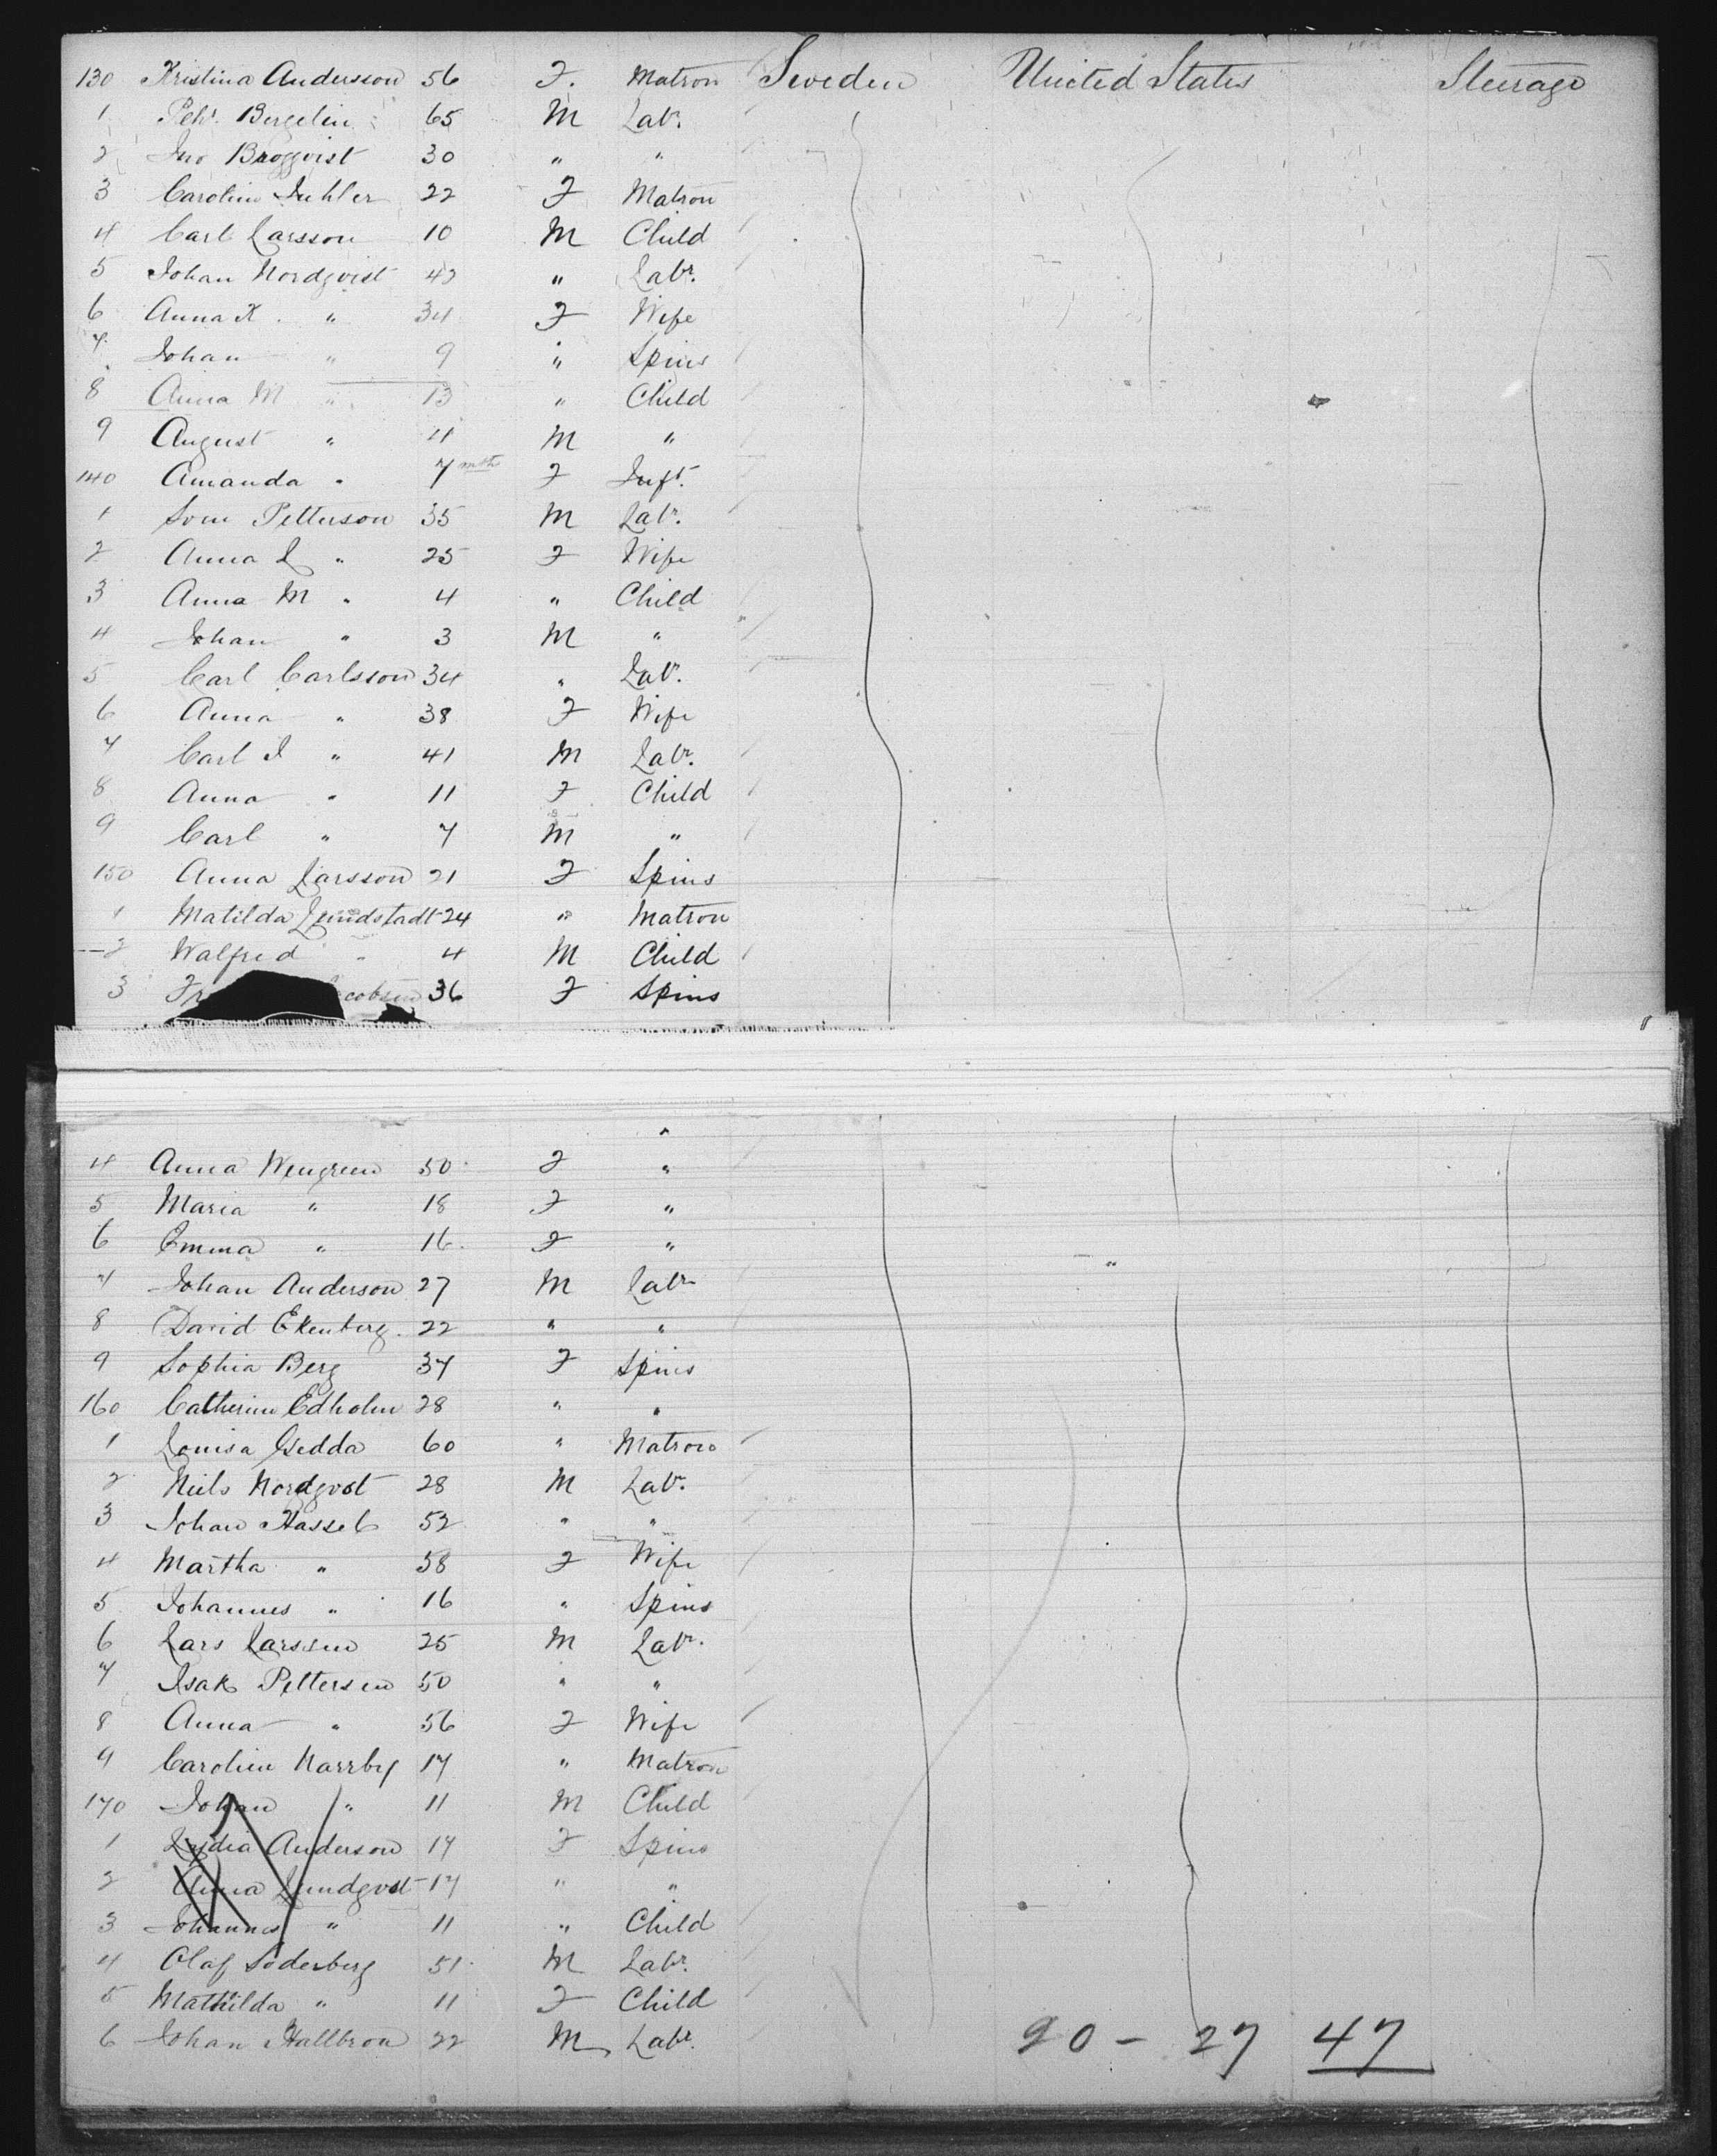 130 Kristina Andersson 56 F. Matron Sweden United States Steerage
1 Pehr. Bergelin 65 M Labr.
2 Jno Broqvist 30 " "
3 Carolin 22 F Matron
4 Carl Larsson 10 M Child
5 Johan Nordqvist 42 " Labr.
6 Anna K. " 34 F Wife
7 Johan " 9 " Spins
8 Anna M " 13 " Child
9 August " 11 M "
140 Amanda " 7 mth F Inft.
1 Petterson 35 M Labr.
2 Anna L " 25 F Wife
3 Anna M " 4 " Child
4 Johan " 3 M "
5 Carl Carlsson 34 " Labr.
6 Anna " 38 F Wife
7 Carl J " 41 M Labr.
8 Anna " 11 F Child
9 Carl " 7 M "
150 Anna Larsson 21 F Spins
1 Matilda Lundstadt 24 " Matron
2 Walfred " 4 M Child
3 36 F Spins
"
4 Anna Wengreen 50 F "
5 Maria " 18 F "
6 Emma " 16 F "
7 Johan Anderson 27 M Labr
8 David Ekenberg. 22 " "
9 Sophia Berg 37 F Spins
160 Catherine Edholm 28 " "
1 Louisa Gedda 60 " Matron
2 Niels Nordqvst 28 M Labr.
3 Johan Hassel 52 " "
4 Martha " 58 F Wife
5 Johannes " 16 " Spins
6 Lars Larssen 25 M Labr.
7 Isak Pettersen 50 " "
8 Anna " 56 F Wife
9 Carolien Narrby 17 " Matron
170 Johan " 11 M Child
1 Lydia Anderson 17 F Spins
2 Anna Lundqvst 17 " "
3 Johannes " 11 " Child
4 Olaf Soderberg 51 M Labr.
5 Mathilda " 11 F Child
6 Johan Hallbron 22 M Labr.
20 - 27 47